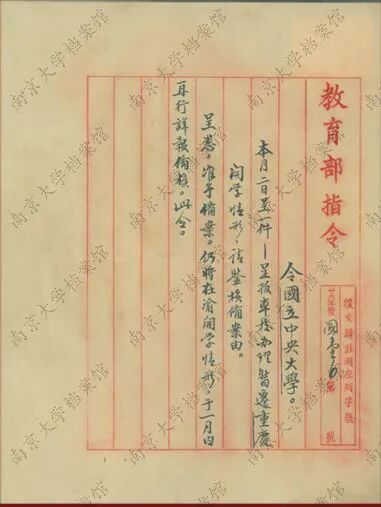 教育部指令
復文請註明左列字號
令國立中央大學。
本月二日呈一件——呈报本校办理暂遷重慶
開学情形，請鉴核備案由。
呈悉。准予備案。仍将在渝開学情形，于一月内
再行詳報備核。此令。
南京大学档案馆